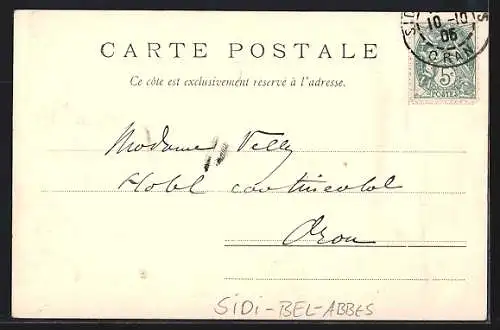 CARTE POSTALE
Ce côté est exclusivement réservé à l'adresse.
SIDI
S
10-10
06
ORAN
5
POSTES
Madame Velly
Hotel continental
Oran
SIDI-BEL-ABBES